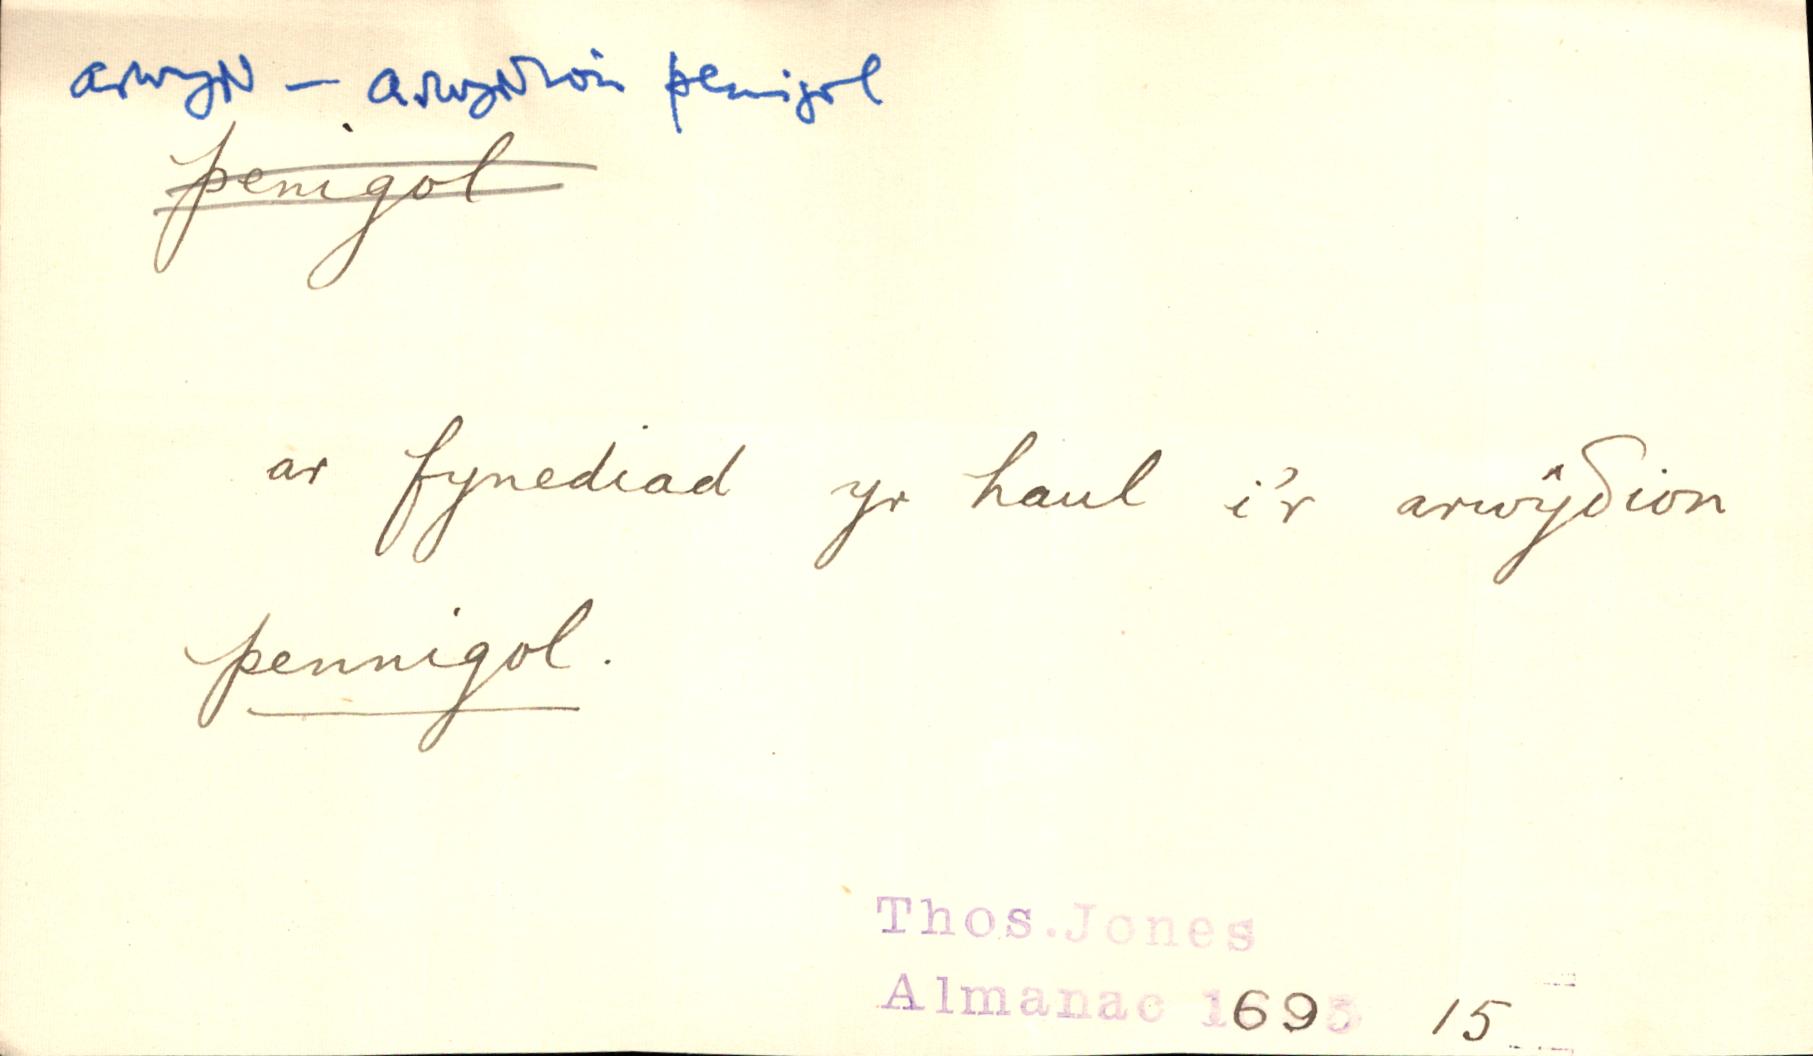 arwydd – arwyddion penigol
penigol
ar fynediad yr haul i'r arwŷδion
pennigol.
Thos. Jones
Almanac 1695 15